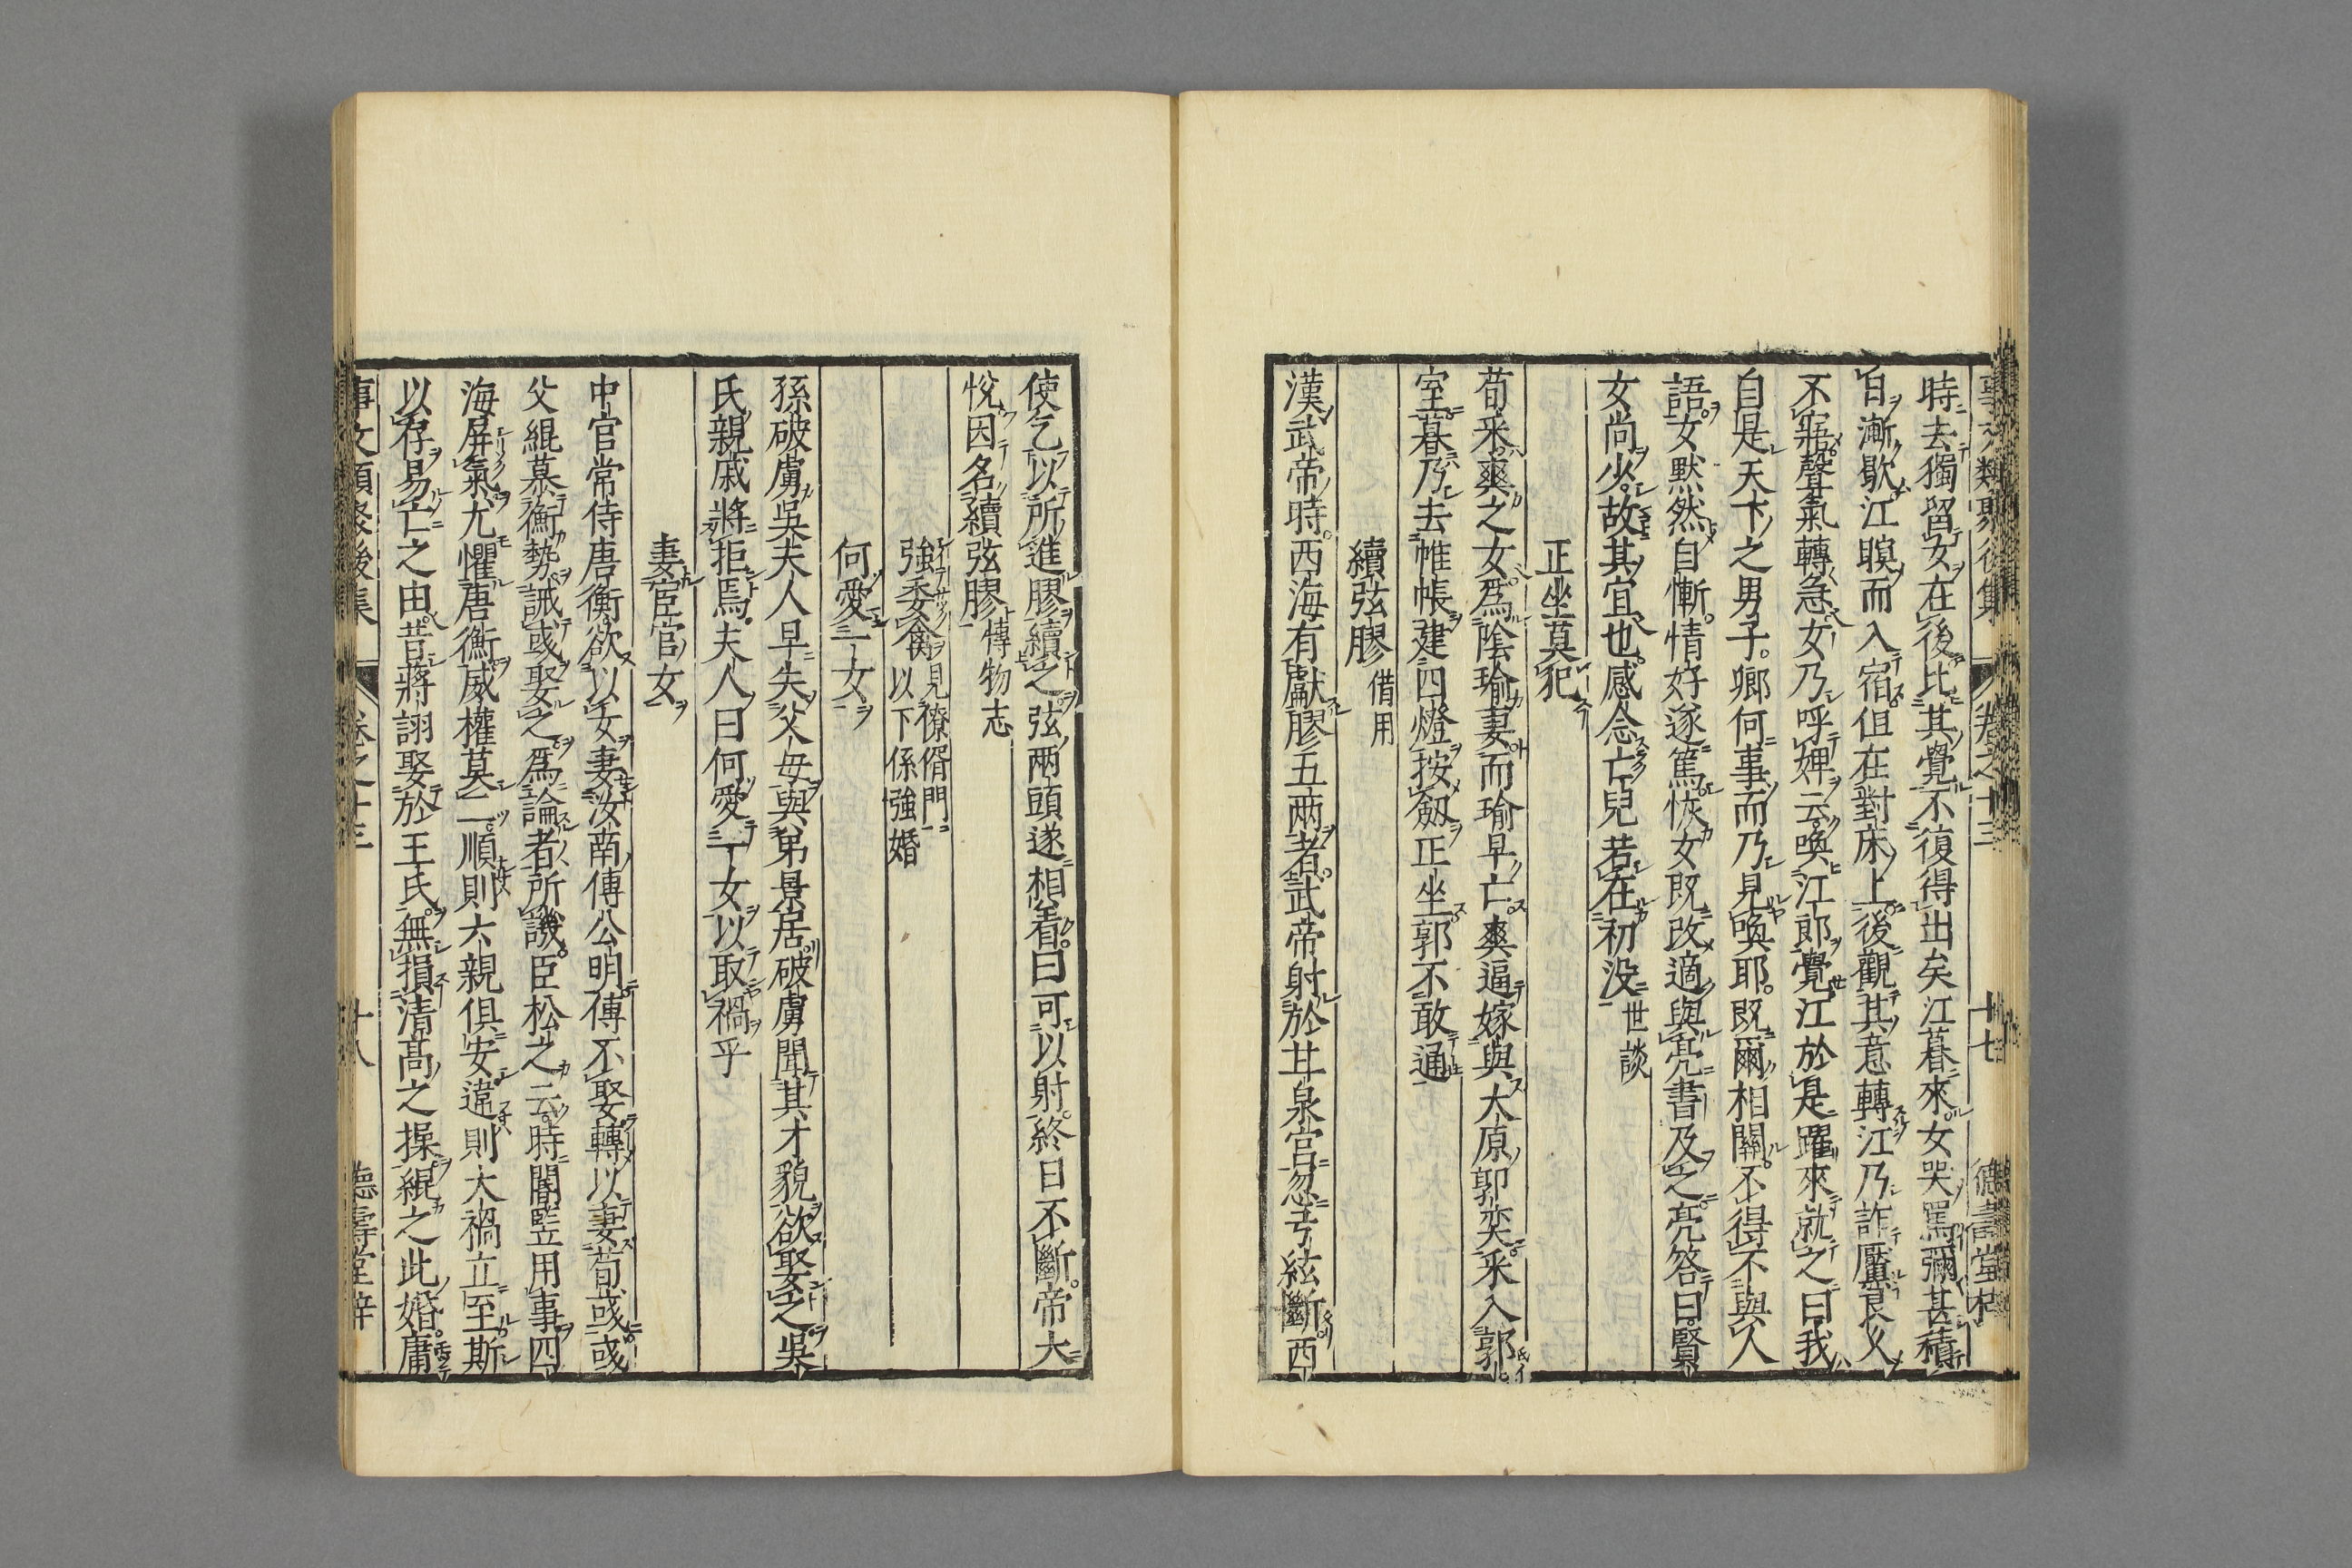 事文類聚後集 卷之十三 十七 德壽堂梓
時去獨留女在後比其覺不復得出矣江暮來女哭罵彌甚積
日漸歇江暝而入宿伹在對床上後觀其意轉江乃詐魘良乆
不寤聲氣轉急女乃呼婢云喚江郎覺江於是躍來就之曰我
自是天下之男子卿何事而乃見喚耶既爾相關不得不與人
語女黙然自慚情好遂篤恢女既改適與亮書及之亮答曰賢
女尚少故其宜也感念亡兒若在初没世談
正坐莫犯
荀采爽之女爲陰瑜妻而瑜早亡爽逼嫁與大原郭奕采入郭
室暮乃去帷帳建四燈按劔正坐郭不敢通
續弦膠借用
漢武帝時西海有獻膠五兩者武帝射於甘泉宫忽弓絃斷西
使乞以所進膠續之弦兩頭遂相着曰可以射終日不斷帝大
悅因名續弦膠博物志
強委禽見僚偦門
以下係強婚
何愛一女
孫破虜吳夫人早失父母與弟景居破虜聞其才貌欲娶之吳
氏親戚將拒焉夫人曰何愛一女以取禍乎
妻宦官女
中官常侍唐衡欲以女妻汝南傅公明傅不娶轉以妻荀彧彧
父緄慕衡勢誡彧娶之爲論者所譏臣松之云時閹竪用事四
海屏氣尤懼唐衡威權莫二順則六親俱安違則大禍立至斯
以存易亡之由昔蔣詡娶於王氏無損清髙之操緄之此婚庸
事文類聚後集 卷之十三 十八 德壽堂梓